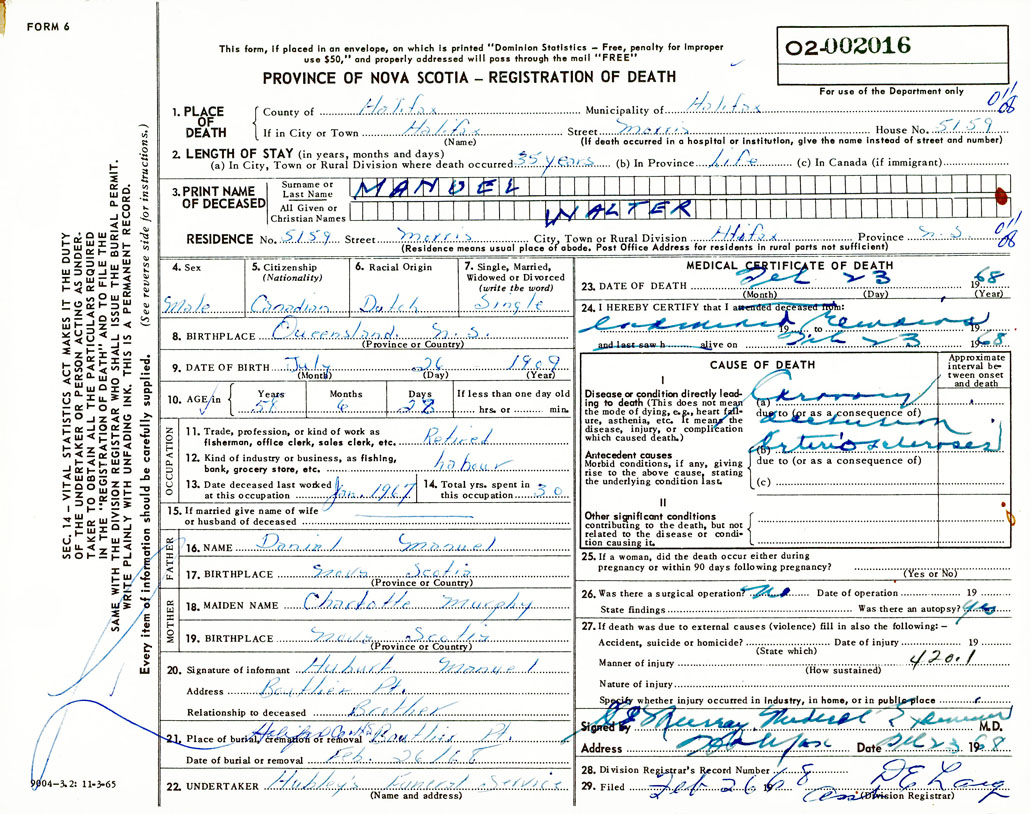 FORM 6
This form, if placed in an envelope, on which is printed "Dominion Statistics – Free, penalty for improper
use $50," and properly addressed will pass through the mail "FREE"
PROVINCE OF NOVA SCOTIA – REGISTRATION OF DEATH
O2-002016
For use of the Department only
1. PLACE OF DEATH
County of Halifax Municipality of Halifax
If in City or Town Halifax Street Morris House No. 5159
(Name) (If death occurred in a hospital or Institution, give the name instead of street and number)
2. LENGTH OF STAY (in years, months and days)
(a) In City, Town or Rural Division where death occurred: 35 years (b) In Province Life (c) In Canada (if immigrant)
3. PRINT NAME OF DECEASED
Surname or Last Name MANUEL
All Given or Christian Names WALTER
RESIDENCE No. 5159 Street Morris City, Town or Rural Division Halifax Province N.S.
(Residence means usual place of abode. Post Office Address for residents in rural parts not sufficient)
4. Sex
Male
5. Citizenship
(Nationality)
Canadian
6. Racial Origin
Dutch
7. Single, Married,
Widowed or Divorced
(write the word)
Single
8. BIRTHPLACE Queensland, N.S.
(Province or Country)
9. DATE OF BIRTH July 26 1909
(Month) (Day) (Year)
10. AGE in Years 58 Months 6 Days 28 If less than one day old
hrs. or min.
OCCUPATION
11. Trade, profession, or kind of work as
fisherman, office clerk, sales clerk, etc. Retired
12. Kind of industry or business, as fishing,
bank, grocery store, etc. labour
13. Date deceased last worked
at this occupation Jan. 1967
14. Total yrs. spent in
this occupation 30
15. If married give name of wife
or husband of deceased
FATHER
16. NAME Danial Manuel
17. BIRTHPLACE Nova Scotia
(Province or Country)
MOTHER
18. MAIDEN NAME Charlotte Murphy
19. BIRTHPLACE Nova Scotia
(Province or Country)
20. Signature of informant Hubert Manuel
Address Boutlier Pt.
Relationship to deceased Brother
21. Place of burial, cremation or removal Boutlier Pt.
Date of burial or removal Feb. 26/68
22. UNDERTAKER Hubley's Funeral Service
(Name and address)
MEDICAL CERTIFICATE OF DEATH
23. DATE OF DEATH Feb 23 1968
(Month) (Day) (Year)
24. I HEREBY CERTIFY that I attended deceased from:
examined remains
19 to
and last saw h alive on Feb 23 1968
CAUSE OF DEATH
Approximate
interval be-
tween onset
and death
I
Disease or condition directly lead-
ing to death (This does not mean
the mode of dying, e.g., heart fail-
ure, asthenia, etc. It means the
disease, injury, or complication
which caused death.)
(a) Coronary
due to (or as a consequence of)
occlusion
(b) Arteriosclerosis
Antecedent causes
Morbid conditions, if any, giving
rise to the above cause, stating
the underlying condition last.
due to (or as a consequence of)
(c)
II
Other significant conditions
contributing to the death, but not
related to the disease or condi-
tion causing it.
25. If a woman, did the death occur either during
pregnancy or within 90 days following pregnancy?
(Yes or No)
26. Was there a surgical operation? No Date of operation 19
State findings Was there an autopsy? yes
27. If death was due to external causes (violence) fill in also the following: –
Accident, suicide or homicide? Date of injury 19
(State which)
Manner of injury 420.1
(How sustained)
Nature of injury
Specify whether injury occurred in Industry, in home, or in public place
Signed by Murray Medical Examiner M.D.
Address Halifax Date Feb 23 1968
28. Division Registrar's Record Number
29. Filed Feb 26 1968
(Division Registrar)
SEC. 14 – VITAL STATISTICS ACT MAKES IT THE DUTY
OF THE UNDERTAKER OR PERSON ACTING AS UNDER-
TAKER TO OBTAIN ALL THE PARTICULARS REQUIRED
IN THE "REGISTRATION OF DEATH" AND TO FILE THE
SAME WITH THE DIVISION REGISTRAR WHO SHALL ISSUE THE BURIAL PERMIT.
WRITE PLAINLY WITH UNFADING INK. THIS IS A PERMANENT RECORD.
Every item of information should be carefully supplied. (See reverse side for instructions.)
9004–3.2: 11-3-65